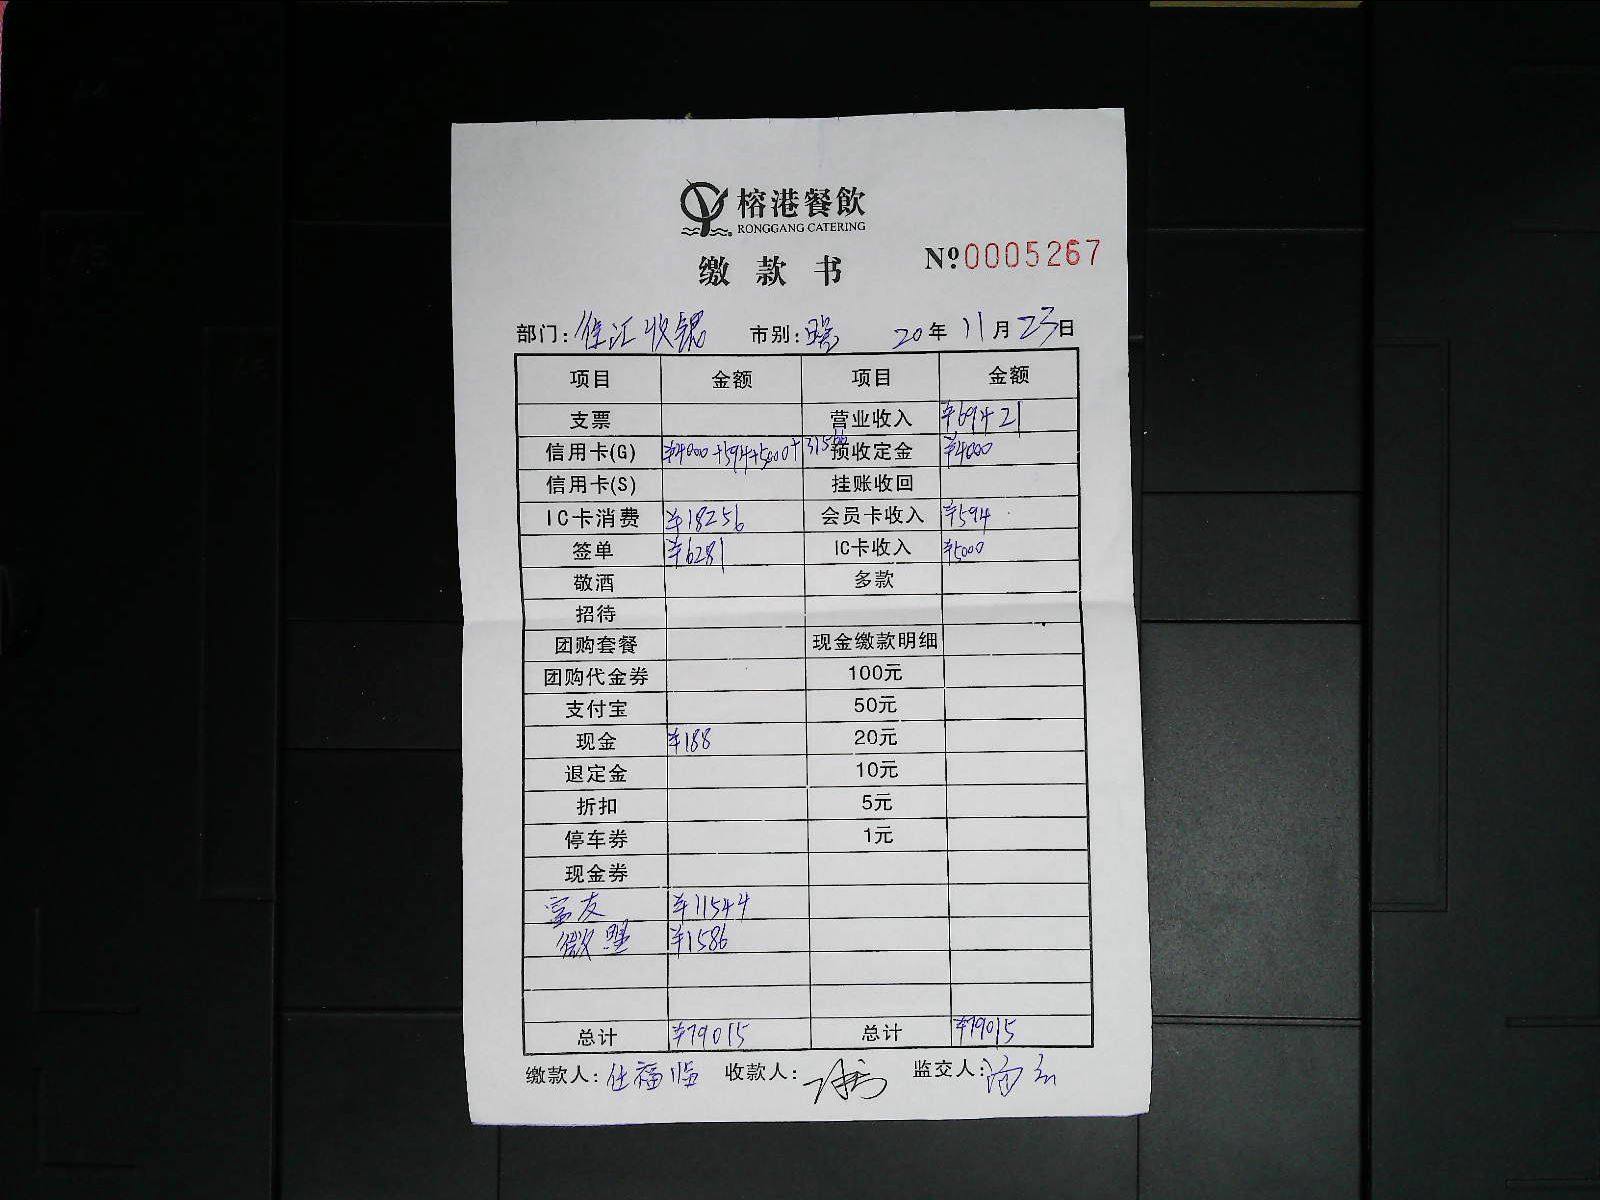 榕港餐飲
RONGGANG CATERING
缴款书
Nº 0005267
部门: 徐汇收银 市别: 20年 11月 23日
项目 金额 项目 金额
支票 营业收入 ¥69421
信用卡(G) ¥4000+594+5000+31566 预收定金 ¥4000
信用卡(S) 挂账收回
IC卡消费 ¥18256 会员卡收入 ¥594
签单 ¥6281 IC卡收入 ¥5000
敬酒 多款
招待
团购套餐 现金缴款明细
团购代金券 100元
支付宝 50元
现金 ¥188 20元
退定金 10元
折扣 5元
停车券 1元
现金券
¥11544
微盟 ¥1586
总计 ¥79015 总计 ¥79015
缴款人: 任福临 收款人: 监交人: